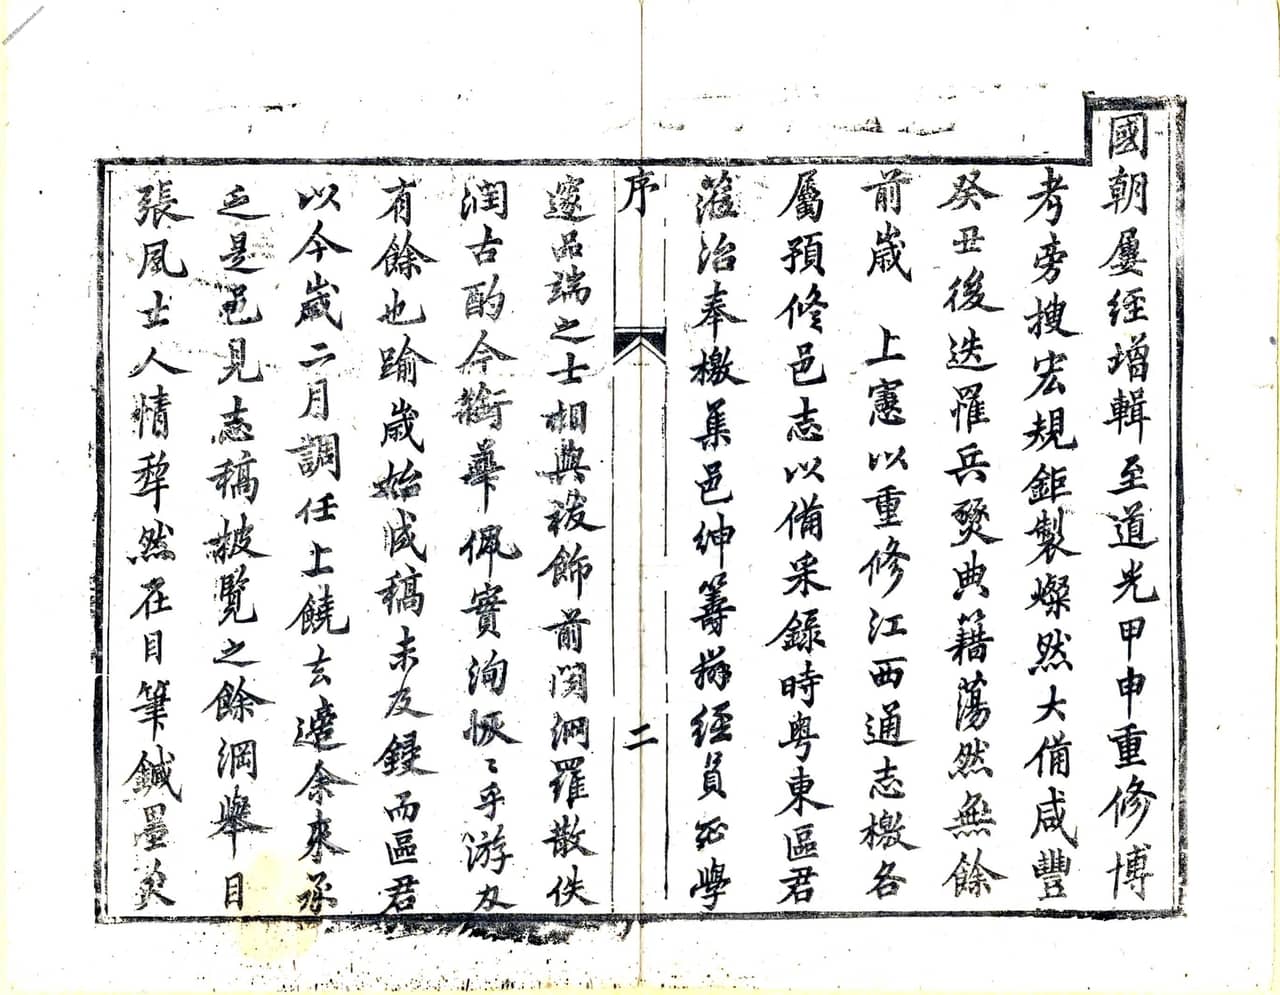 國朝屢經增輯至道光甲申重修博
考旁搜宏規鉅製燦然大備咸豐
癸丑後迭罹兵燹典籍蕩然無餘
前歲 上憲以重修江西通志檄各
屬預修邑志以備采錄時粵東區君
蒞治奉檄集邑紳籌辦經員延學
邃品端之士相與祓飾前聞網羅散佚
潤古酌今銜華佩實洵恢〻乎游刃
有餘也踰歲始成稿未及鋟而區君
以今歲二月調任上饒去邊余來承
乏是邑見志稿披覽之餘綱舉目
張風士人情犂然在目筆鍼墨炙
序
二